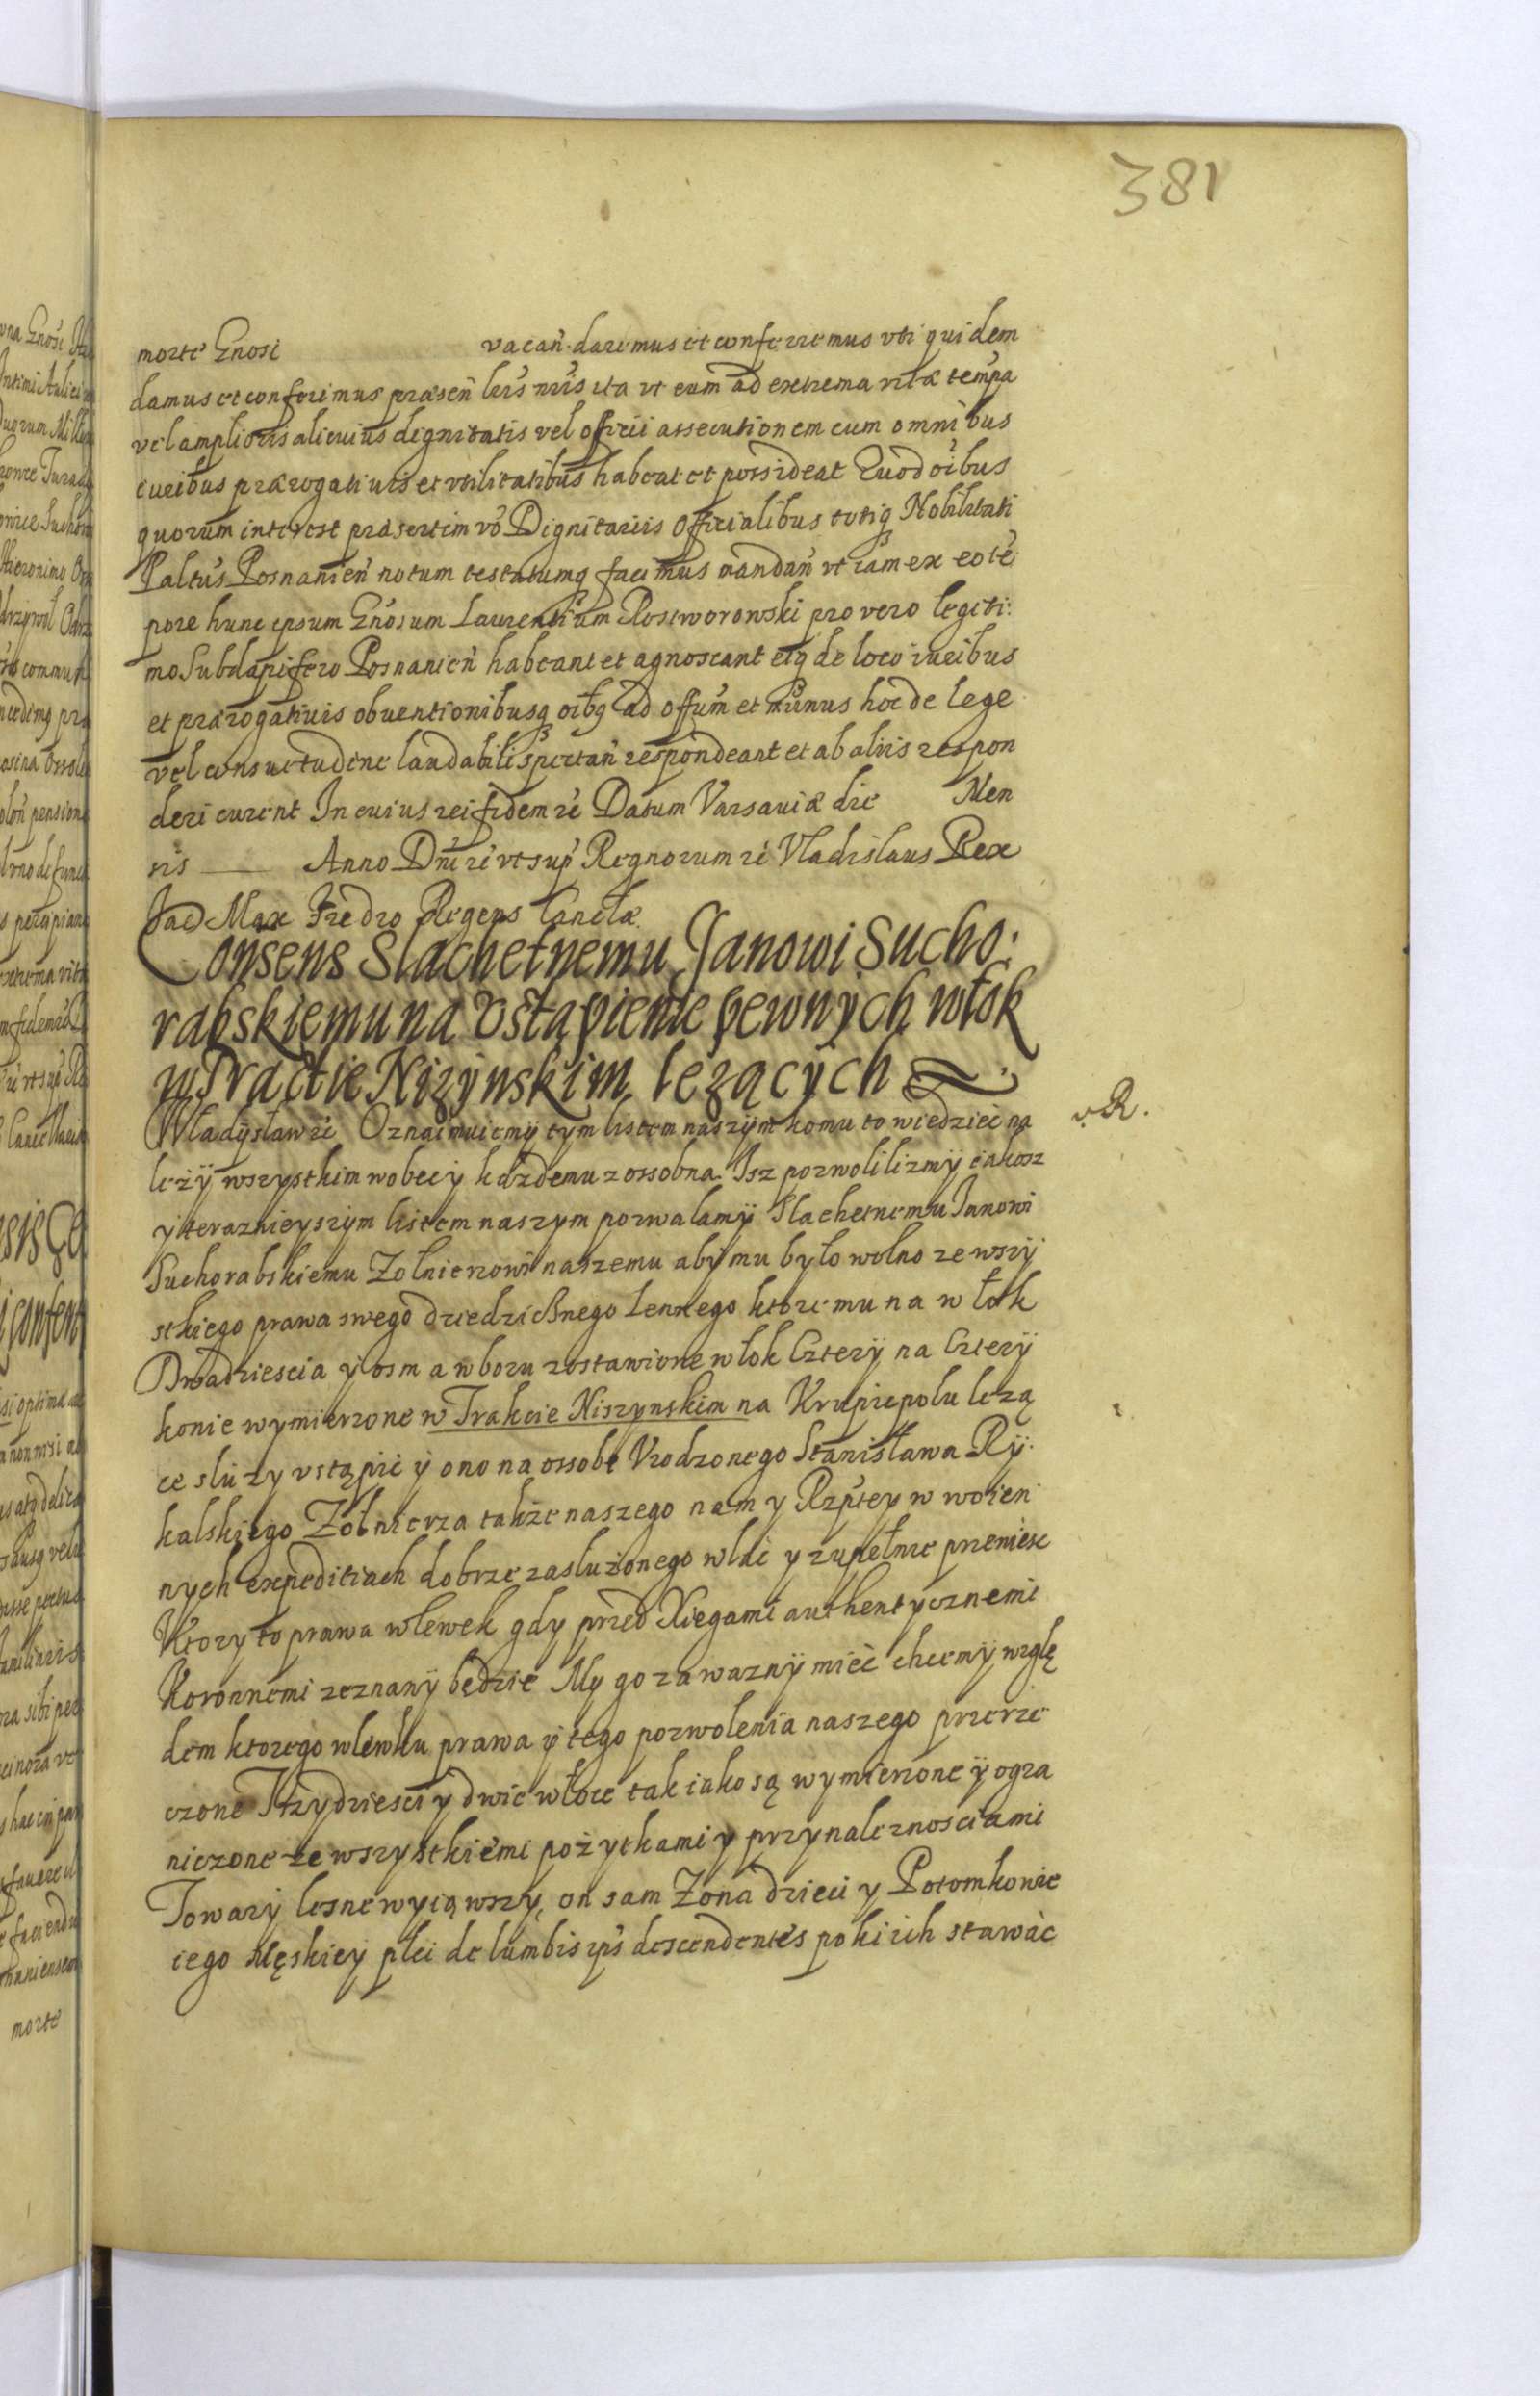 381
morte Gnosi vacan̄. daremus et conferremus vti quidem
damus et conferimus præsen̄ lrīs nrīs ita vt eum ad extrema vitæ temp̄a
vel amplioris alicuius dignitatis vel officii assecutionem cum omnibus
iuribus prærogatiuis et vtilitatibus habeat et possideat Quod oībus
quorum interest præsertim vō Dignitariis Officialibus totiq Nobilitati
Paltūs Posnanien̄ notum testatumq facimus mandan̄ vt iam ex eo tē
pore hunc ipsum Gnōsum Laurentium Rostworowski pro vero legiti:
mo Subdapifero Posnanien̄ habeant et agnoscant eiq de loco iuribus
et prærogatiuis obuentionibusq oībq ad offūm et munus hoc de lege
vel consuetudine laudabili spectan̄ respondeant et ab aliis respon
deri curent In cuius rei fidem rē Datum Varsauiæ die Men
sis Anno Dnī rē vt sup̄ Regnorum rē Vladislaus Rex
Jac Max Fredro Regens Canclæ
Consens Slachetnemu Janowi Sucho:
rabskiemu na Vstąpienie pewnych włok
w Tractie Niżynskim leżących
Wladysław rē Oznaimuiemy tym listem naszym komu to wiedzieć na
v. R.
leży wszystkim wobec y każdemu z ossobna. Isz pozwolilizmy iakosz
y teraznieyszym listem naszym pozwalamy Slachetnemu Janowi
Suchorabskiemu Żołnierzowi naszemu aby mu było wolno ze wszy
stkiego prawa swego dziedzicznego Lennego ktore mu na włok
Dwadziescia y osm a w boru zostawione włok Cztery na Cztery
konie wymierzone w Trakcie Niszynskim na Krupiepolu leżą
ce służy vstąpić y ono na ossobę Vrodzonego Stanisława Ry
kalskiego Żołnierza także naszego nam y Rzptey w woien
nych expeditiach dobrze zasłużonego wlać y zupełnie przeniesc
Ktory to prawa wlewek gdy przed Xięgami authentycznemi
Koronnemi zeznany będzie My go za wazny mieć chcemy wzglę
dem ktorego wlewku prawa y tego pozwolenia naszego przerze
czone Trzydziesci y dwie włoce tak iako są wymierzone y ogra
niczone ze wszystkiemi pożytkami y przynaleznosciami
Towary lesne wyiąwszy, on sam Żona dzieci y Potomkowie
iego Męskiey płci de lumbis ips̄ descendentes poki ich stawać